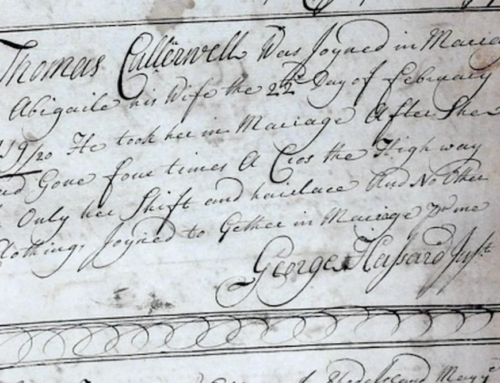 Thomas Cullerwell Was Joyned in Maria
Abigaile his Wife the 22d Day of February
19/20 He took her in Mariage After She
had Gone four times A Cros the High way
Only her Shift and hairlace And No Other
Clothing. Joyned to Gether in Mariage pr me
George Hassard Just